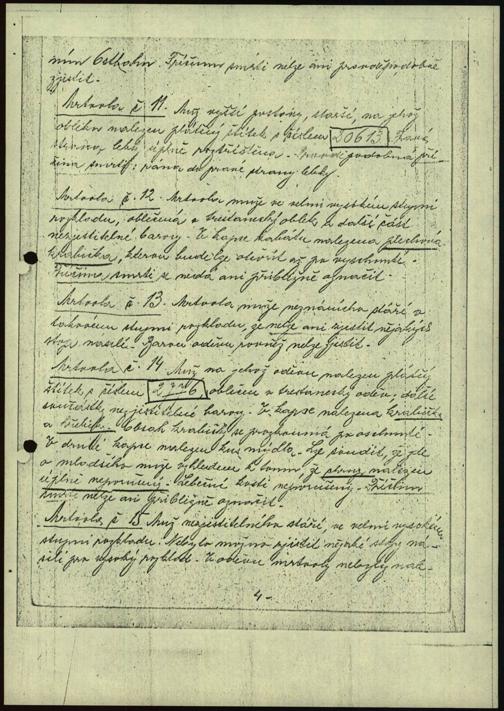 Příčinu smrti nelze ani pravděpodobně
zjistit.
Mrtvola č 11. Muž vyšší postavy, starší, na jehož
obleku nalezen plátěný štítek s číslem 20613. Pravá
strana lebky úplně roztříštěna. Pravděpodobná pří-
čina smrti: rána do pravé strany lebky.
Mrtvola č. 12. Mrtvola muže ve velmi vysokém stupni
rozkladu, oblečena v trestanecký oblek a další část
nezjistitelné barvy. V kapse kabátu nalezena plechová
krabička, kterou bude lze otevřít až po vyschnutí.
Příčinu smrti se nedá ani přibližně označit.
Mrtvola č 13. Mrtvola muže neznámého stáří v
takovém stupni rozkladu, že nelze ani zjistit nějakých
stop násilí. Barvu oděvu rovněž nelze zjistit.
Mrtvola č. 14 Muž na jehož oděvu nalezen plátěný
štítek s číslem oblečen v trestanecký oděv, další
součástky nezjistitelné barvy. V kapse nalezena krabička
a Obsah krabičky se prozkoumá po oschnutí.
V druhé kapse nalezen kus mýdla. Lze soudit, že jde
o mladšího muže vzhledem k tomu, že nalezen
úplně neporušený. Lebeční kosti neporušeny. Příčinu
smrti nelze ani přibližně označit.
Mrtvola č 15 Muž nezjistitelného stáří, ve velmi vysokém
stupni rozkladu. Nebylo možno zjistit nějaké stopy ná-
silí pro vysoký rozklad. V oděvu mrtvoly nebylo nale-
4-